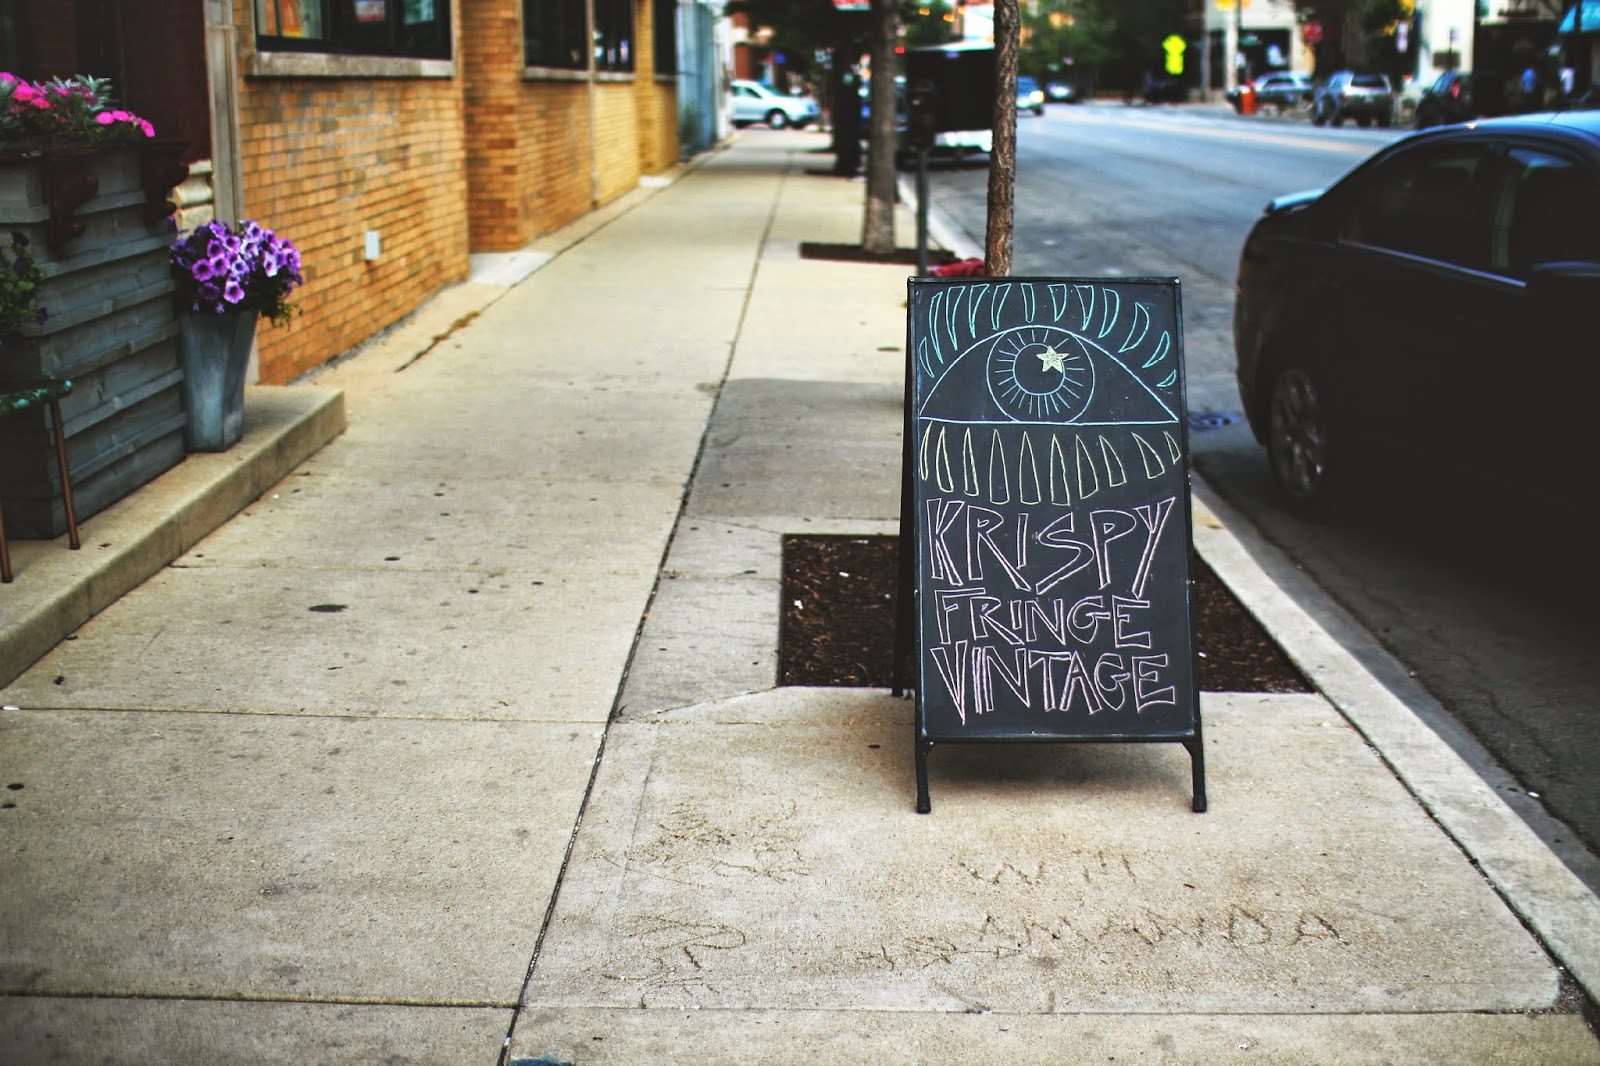 KRISPY
FRINGE
VINTAGE
WILL
AMANDA